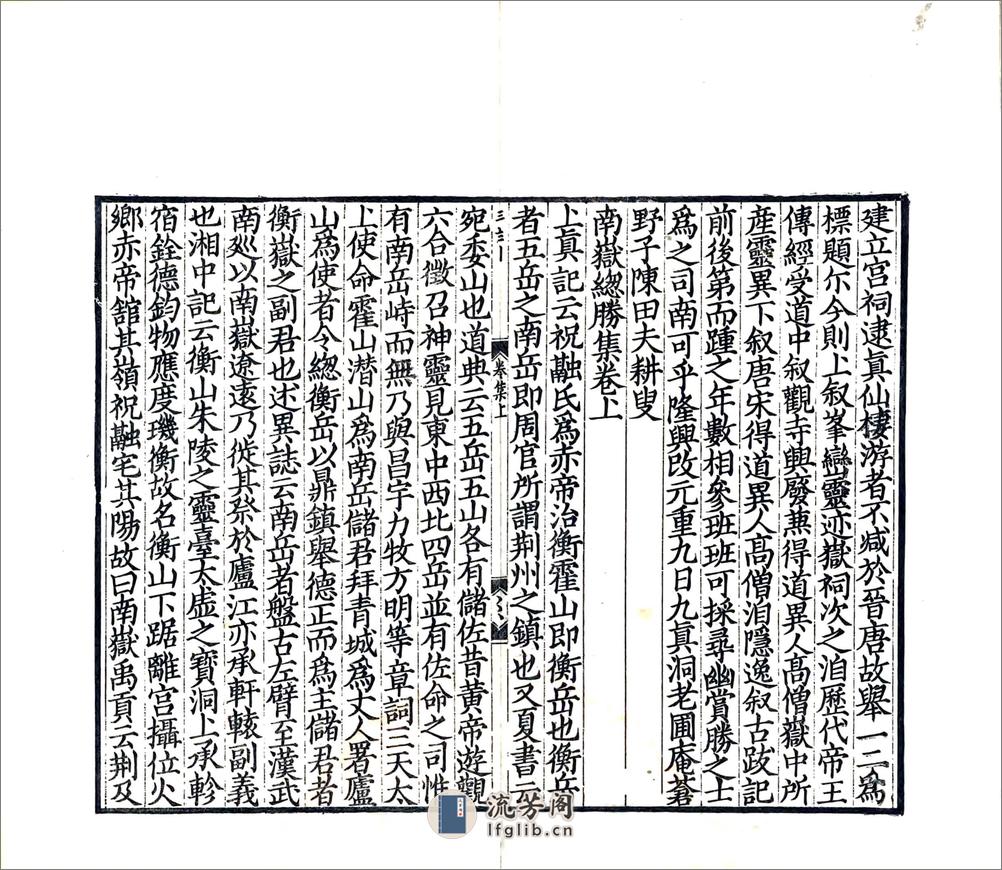 建立宫祠逮真仙棲游者不减於晉唐故舉一二爲
標題尓今則上叙峯巒靈迹嶽祠次之洎歷代帝王
傳經受道中叙觀寺興廢兼得道異人髙僧嶽中所
産靈異下叙唐宋得道異人髙僧洎隱逸叙古跋記
前後第而踵之年數相參班班可採尋幽賞勝之士
爲之司南可乎隆興改元重九日九真洞老圃庵蒼
野子陳田夫耕叟
南嶽緫勝集卷上
上真記云祝融氏爲赤帝治衡霍山即衡岳也衡岳
者五岳之南岳即周官所謂荆州之鎮也又夏書云
卷集上
宛委山也道典云五岳五山各有儲佐昔黄帝遊觀
六合徵召神靈見東中西北四岳並有佐命之司惟
有南岳峙而無乃與昌宇力牧方明等章詞三天太
上使命霍山潜山爲南岳儲君拜青城爲丈人署廬
山爲使者令緫衡岳以鼎鎮舉德正而爲主儲君者
衡嶽之副君也述異誌云南岳者盤古左臂至漢武
南廵以南嶽遼逺乃徙其祭於廬江亦承軒轅副義
也湘中記云衡山朱陵之靈臺太虚之寳洞上承軫
宿銓德鈞物應度璣衡故名衡山下踞離宫攝位火
鄉赤帝舘其嶺祝融宅其陽故曰南嶽禹貢云荆及
流芳阁
lfglib.cn